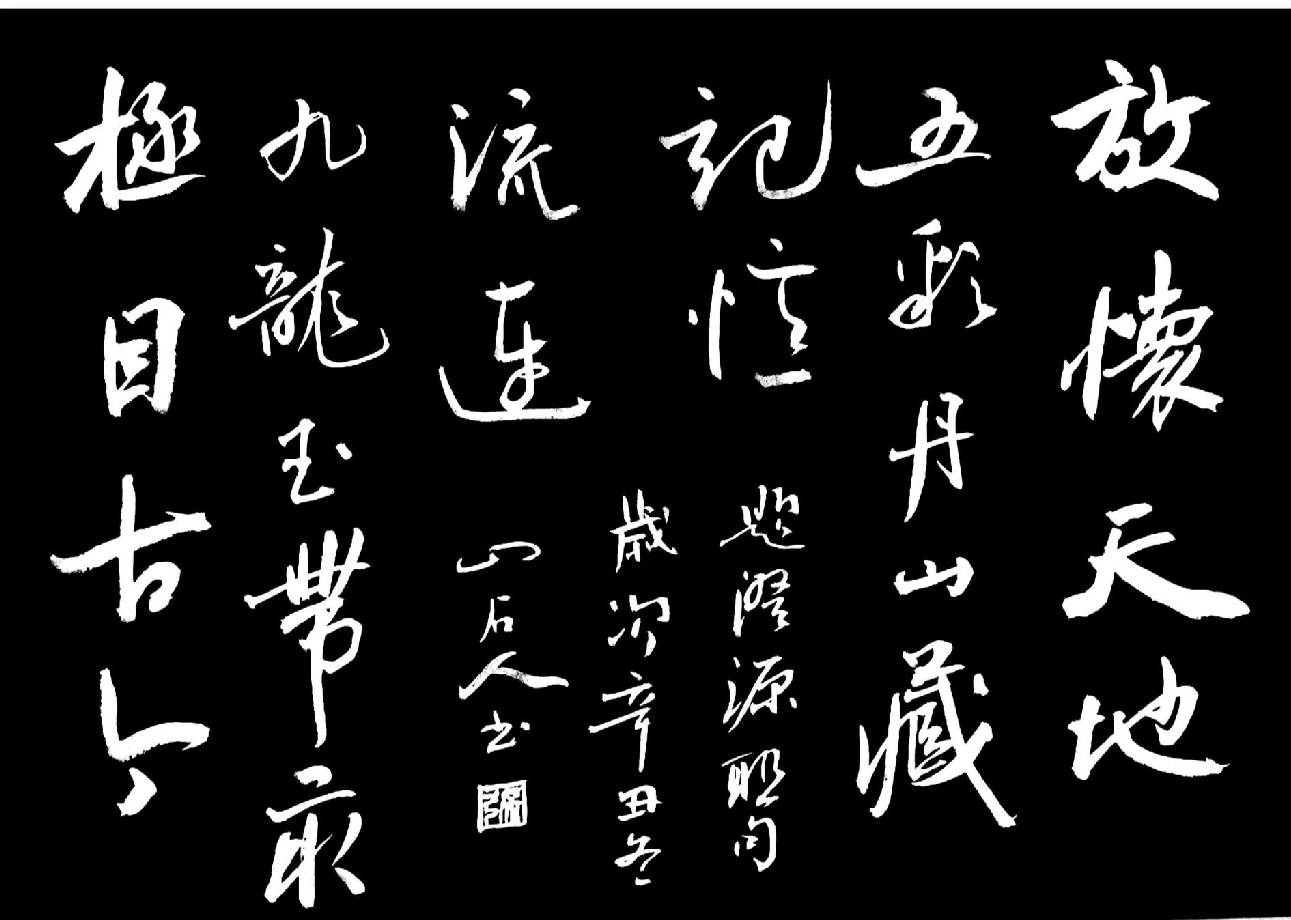 放懷天地
五彩丹山藏
記憶
極目古今
九龍玉帶最
流連
題澄源聯句
歲次辛丑冬
山石人書